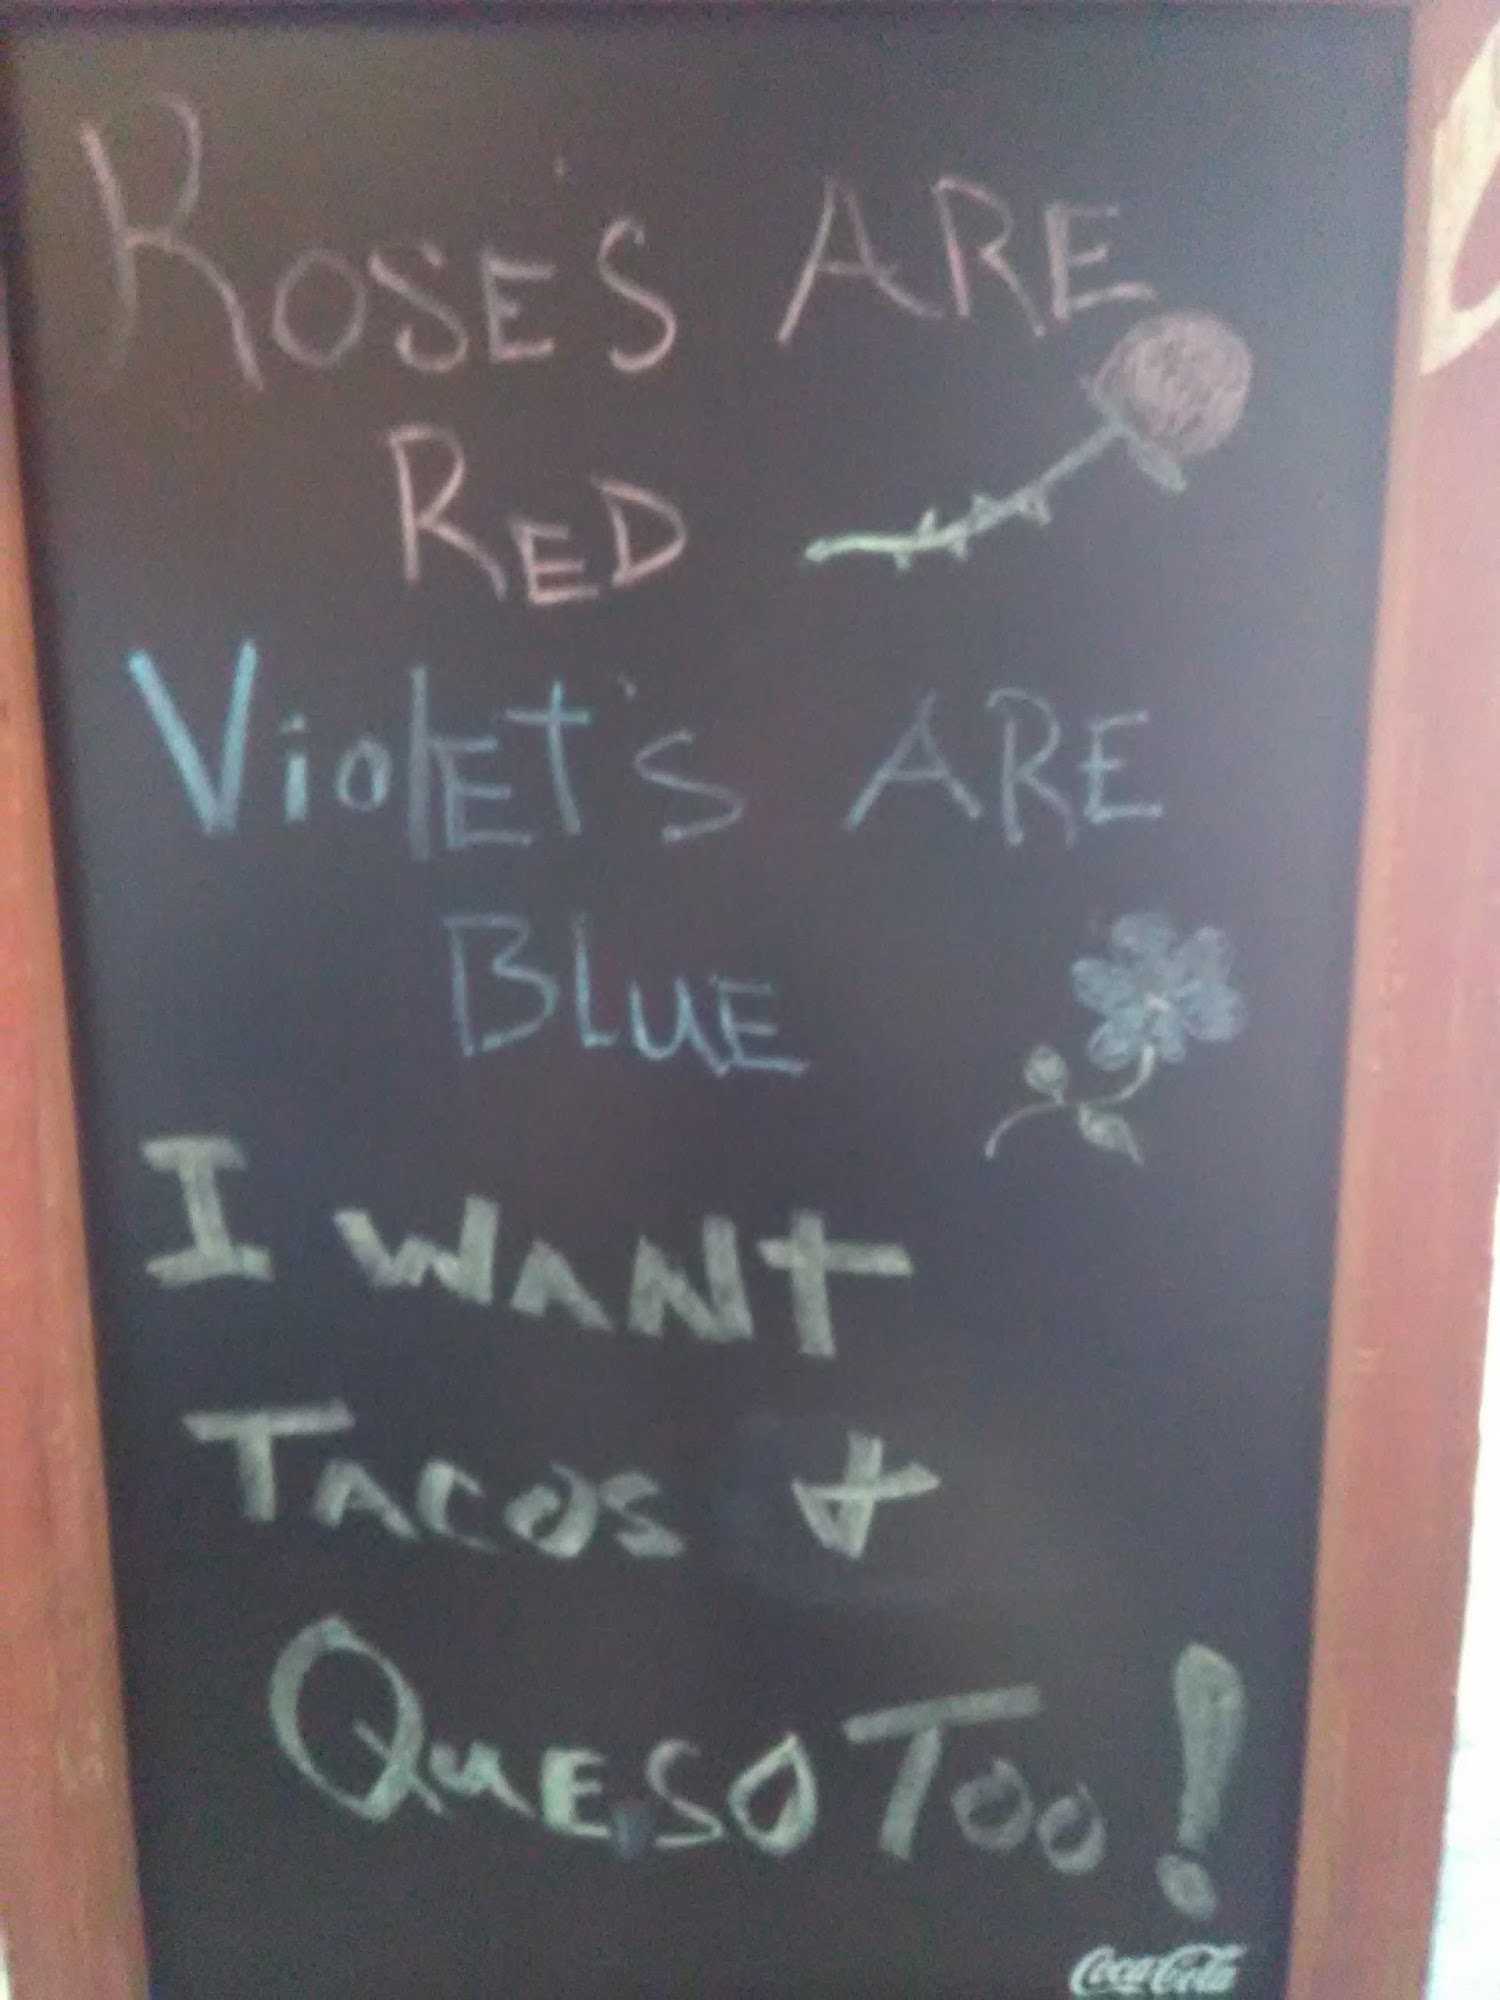 ROSE'S ARE
RED
VioLET's ARE
BLUE
I WANT
TACOS +
QUESO TOO!
Coca-Cola